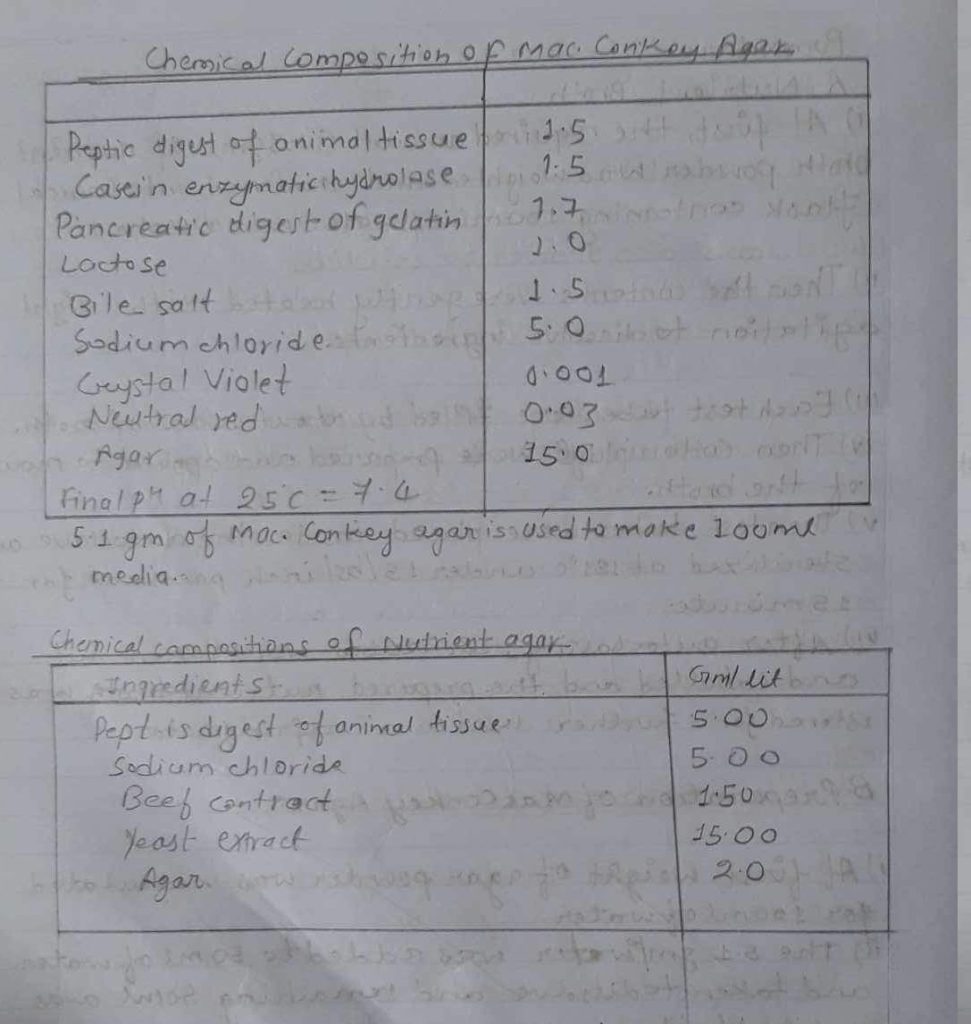 Chemical Composition of Mac. Conkey Agar
Peptic digest of animal tissue 1.5
Casein enzymatic hydrolase 1.5
Pancreatic digest of gelatin 1.7
Lactose 1.0
Bile salt 1.5
Sodium chloride 5.0
Crystal Violet 0.001
Neutral red 0.03
Agar 15.0
Final pH at 25°C = 7.4
5.1 gm of Mac. Conkey agar is used to make 100ml
media.
Chemical compositions of Nutrient agar
Ingredients Gm/lit
Pept is digest of animal tissue 5.00
Sodium chloride 5.00
Beef contract 1.50
Yeast extract 15.00
Agar 2.0